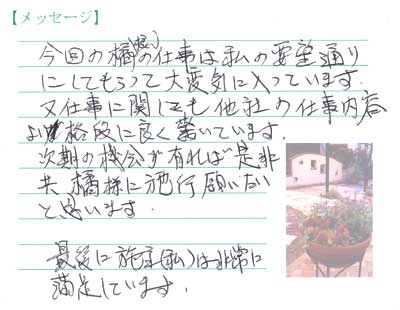 【メッセージ】
今回の橘(様)の仕事は私の要望通り
にしてもらって大変気に入っています.
又仕事に関しても他社の仕事内容
より格段に良く驚いています.
次期の機会が有れば是非
共橘様に施行願いたい
と思います.
最後に施主(私)は非常に
満足しています.